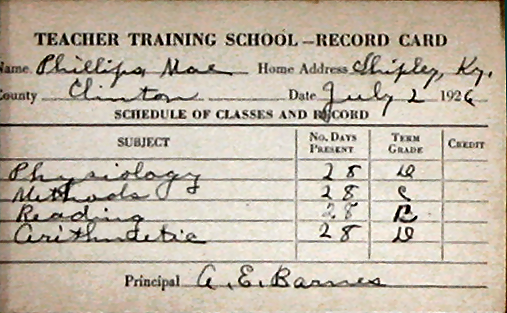 TEACHER TRAINING SCHOOL—RECORD CARD
Name Phillips, Mae Home Address Shipley, Ky.
County Clinton Date July 2 1926
SCHEDULE OF CLASSES AND RECORD
SUBJECT No. Days Present Term Grade Credit
Physiology 28 D
Methods 28 C
Reading 28 B
Arithmetic 28 D
Principal A. E. Barnes